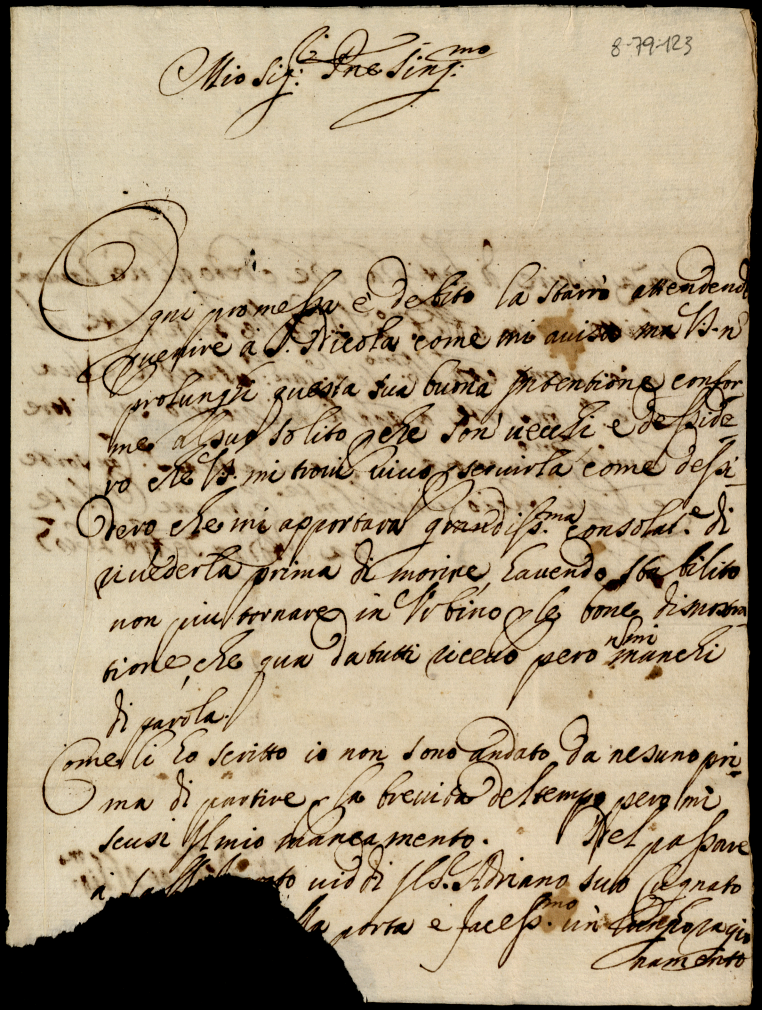 8-79-123
Mio Sig.r Pne Sing.mo
Ogni promessa è debito la starrò attendend
venire à S. Nicola come mi avisa ma V.S. n
prolunghi questa sua buona intentione confor-
me al suo solito che son vecchi e desside-
ro che V.S. mi trovi vivo servirla come dessi-
dero che mi apportara grandiss.ma consolat.e di
rivederla prima di morire, havendo stabilito
non piu tornare in Urbino le bone dimostra-
tione, che qua da tutti ricevo pero n mi manchi
di parola.
Come li ho scritto io non sono andato da nesuno pri-
ma di partire la brevita del tempo pero mi
scusi il mio mancamento. Nel passare
viddi il S. Adriano suo Cugnato
porta e facess.mo un ragio
namento